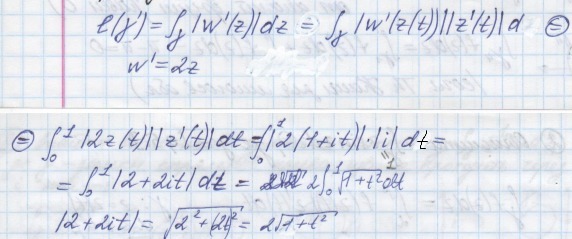 ℓ(γ') = ∫_γ |w'(z)| dz = ∫_γ |w'(z(t))| |z'(t)| d ⊜
w' = 2z
⊜ ∫_0^1 |2z(t)| |z'(t)| dt = ∫_0^1 |2(1+it)|·|i| dt =
"1
= ∫_0^1 |2+2it| dt = 2∫_0^1 √(1+t²) dt
|2+2it| = √(2²+(2t)²) = 2√(1+t²)